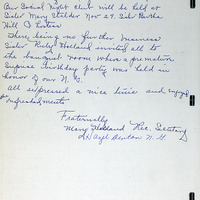 Our Social Night Club will be held at
Sister Mary Stalder Nov 29. Sister Martha
Hill Co hostess
There being no further business
Sister Ruby Holland invited all to
the banquet room where a premature
surprise birthday party was held in
honor of our N. G.
all expressed a nice time and enjoyed
refreshments
Fraternally
Mary Holland Rec. Secretary
Hazel Benton N. G.